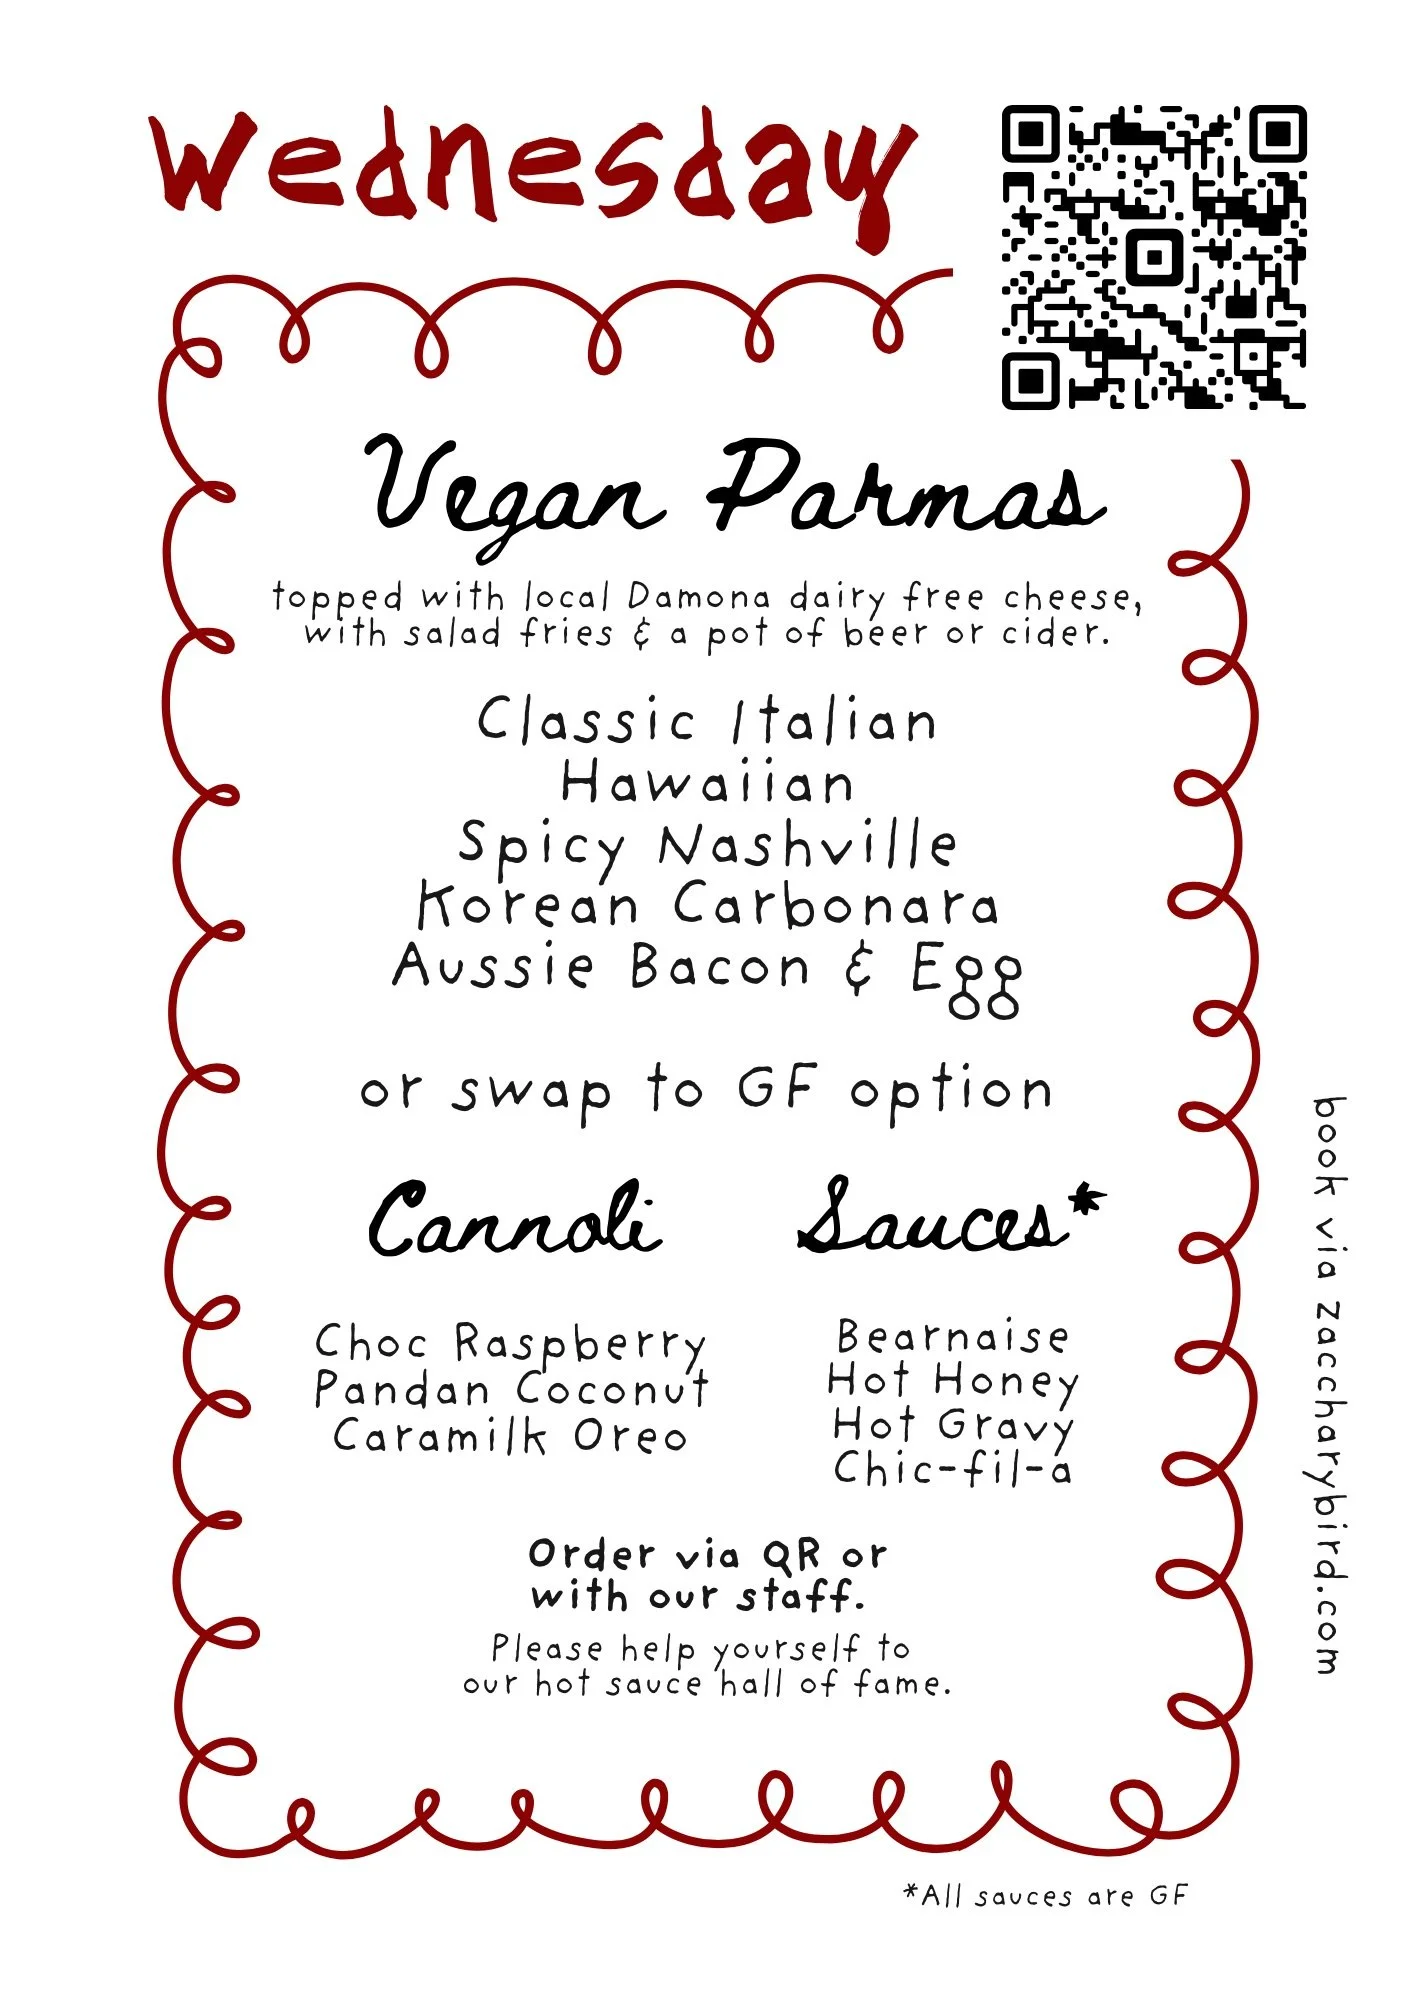 Wednesday
Vegan Parmas
topped with local Damona dairy free cheese,
with salad fries & a pot of beer or cider.
Classic Italian
Hawaiian
Spicy Nashville
Korean Carbonara
Aussie Bacon & Egg
or swap to GF option
Cannoli
Choc Raspberry
Pandan Coconut
Caramilk Oreo
Sauces*
Bearnaise
Hot Honey
Hot Gravy
Chic-fil-a
Order via QR or
with our staff.
Please help yourself to
our hot sauce hall of fame.
book via zaccharybird.com
*All sauces are GF